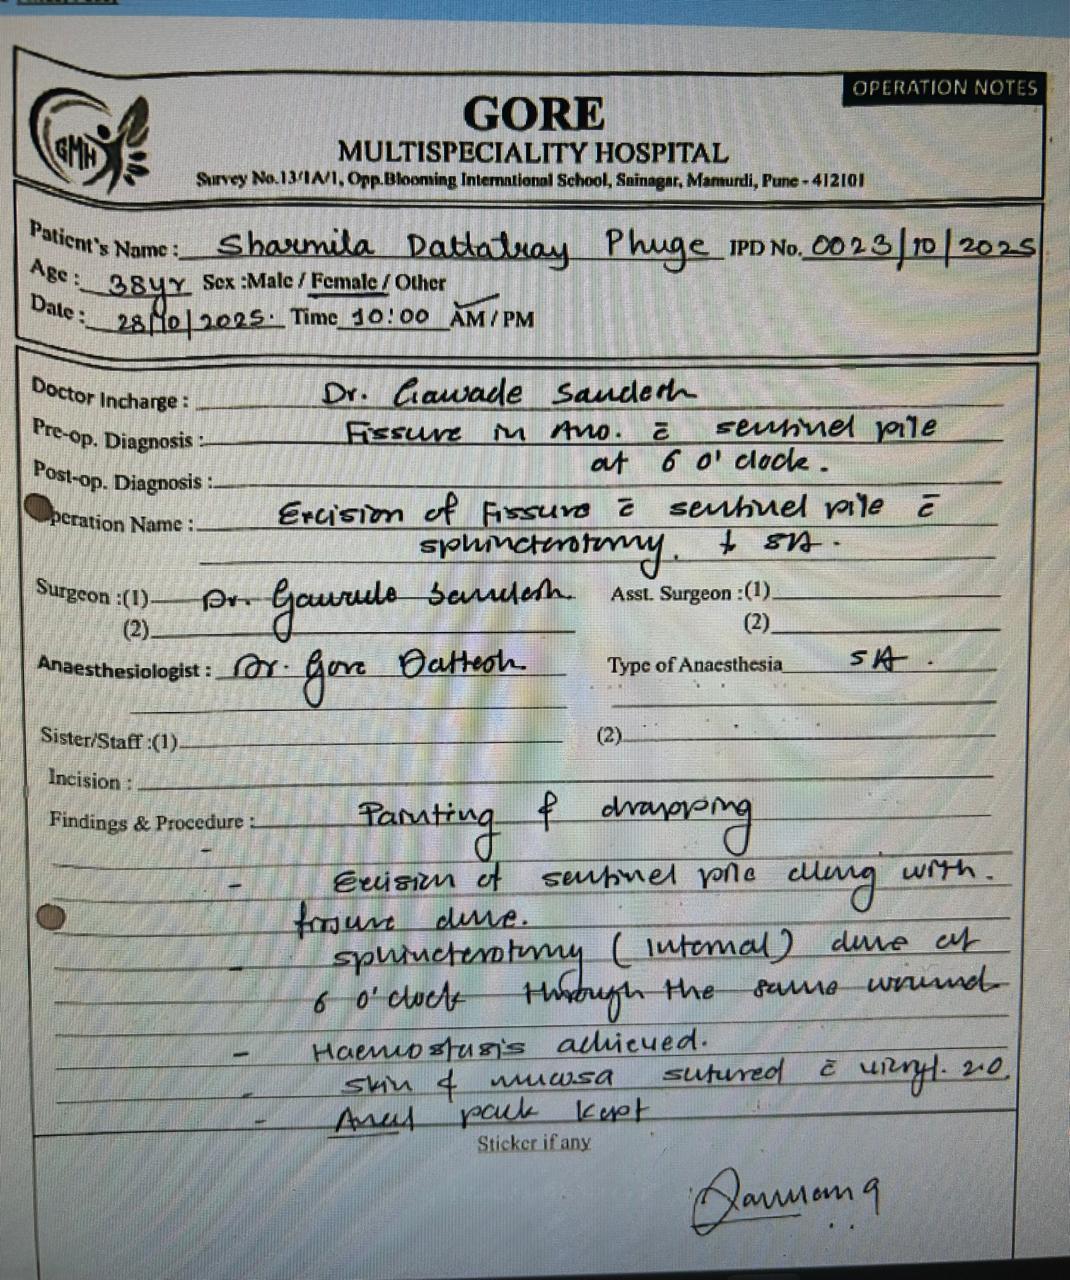 OPERATION NOTES
GMH
GORE
MULTISPECIALITY HOSPITAL
Survey No.13/1A/1, Opp.Blooming International School, Sainagar, Mamurdi, Pune - 412101
Patient's Name : Sharmila Dattatray Phuge IPD No. 0023/10/2025
Age : 38yr Sex :Male / Female / Other
Date : 28/10/2025. Time 10:00 AM / PM
Doctor Incharge : Dr. Gawade Sandesh
Pre-op. Diagnosis : Fissure in Ano. c̄ sentinel pile
at 6 o'clock.
Post-op. Diagnosis :
Operation Name : Excision of Fissure c̄ sentinel pile c̄
sphincterotomy. ↓ SA.
Surgeon :(1) Dr. Gawade Sandesh. Asst. Surgeon :(1)
(2) (2)
Anaesthesiologist : Dr. Gore Type of Anaesthesia SA.
Sister/Staff :(1) (2)
Incision :
Findings & Procedure : Painting & drapping
- Excision of sentinel pile along with.
fissure done.
- sphincterotomy (internal) done at
6 o'clock through the same wound
- Haemostasis achieved.
- skin & mucosa sutured c̄ vicryl. 2.0.
- Anal pack kept
Sticker if any